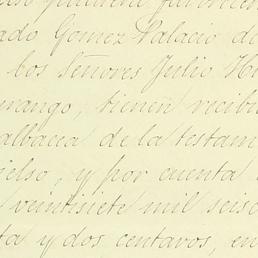 ado Gomez Palacio de
los Señores Julio H
rango, tienen recibi
albacea de la testam
ielso, y por cuenta
veintisiete mil seisc
ta y dos centavos, en